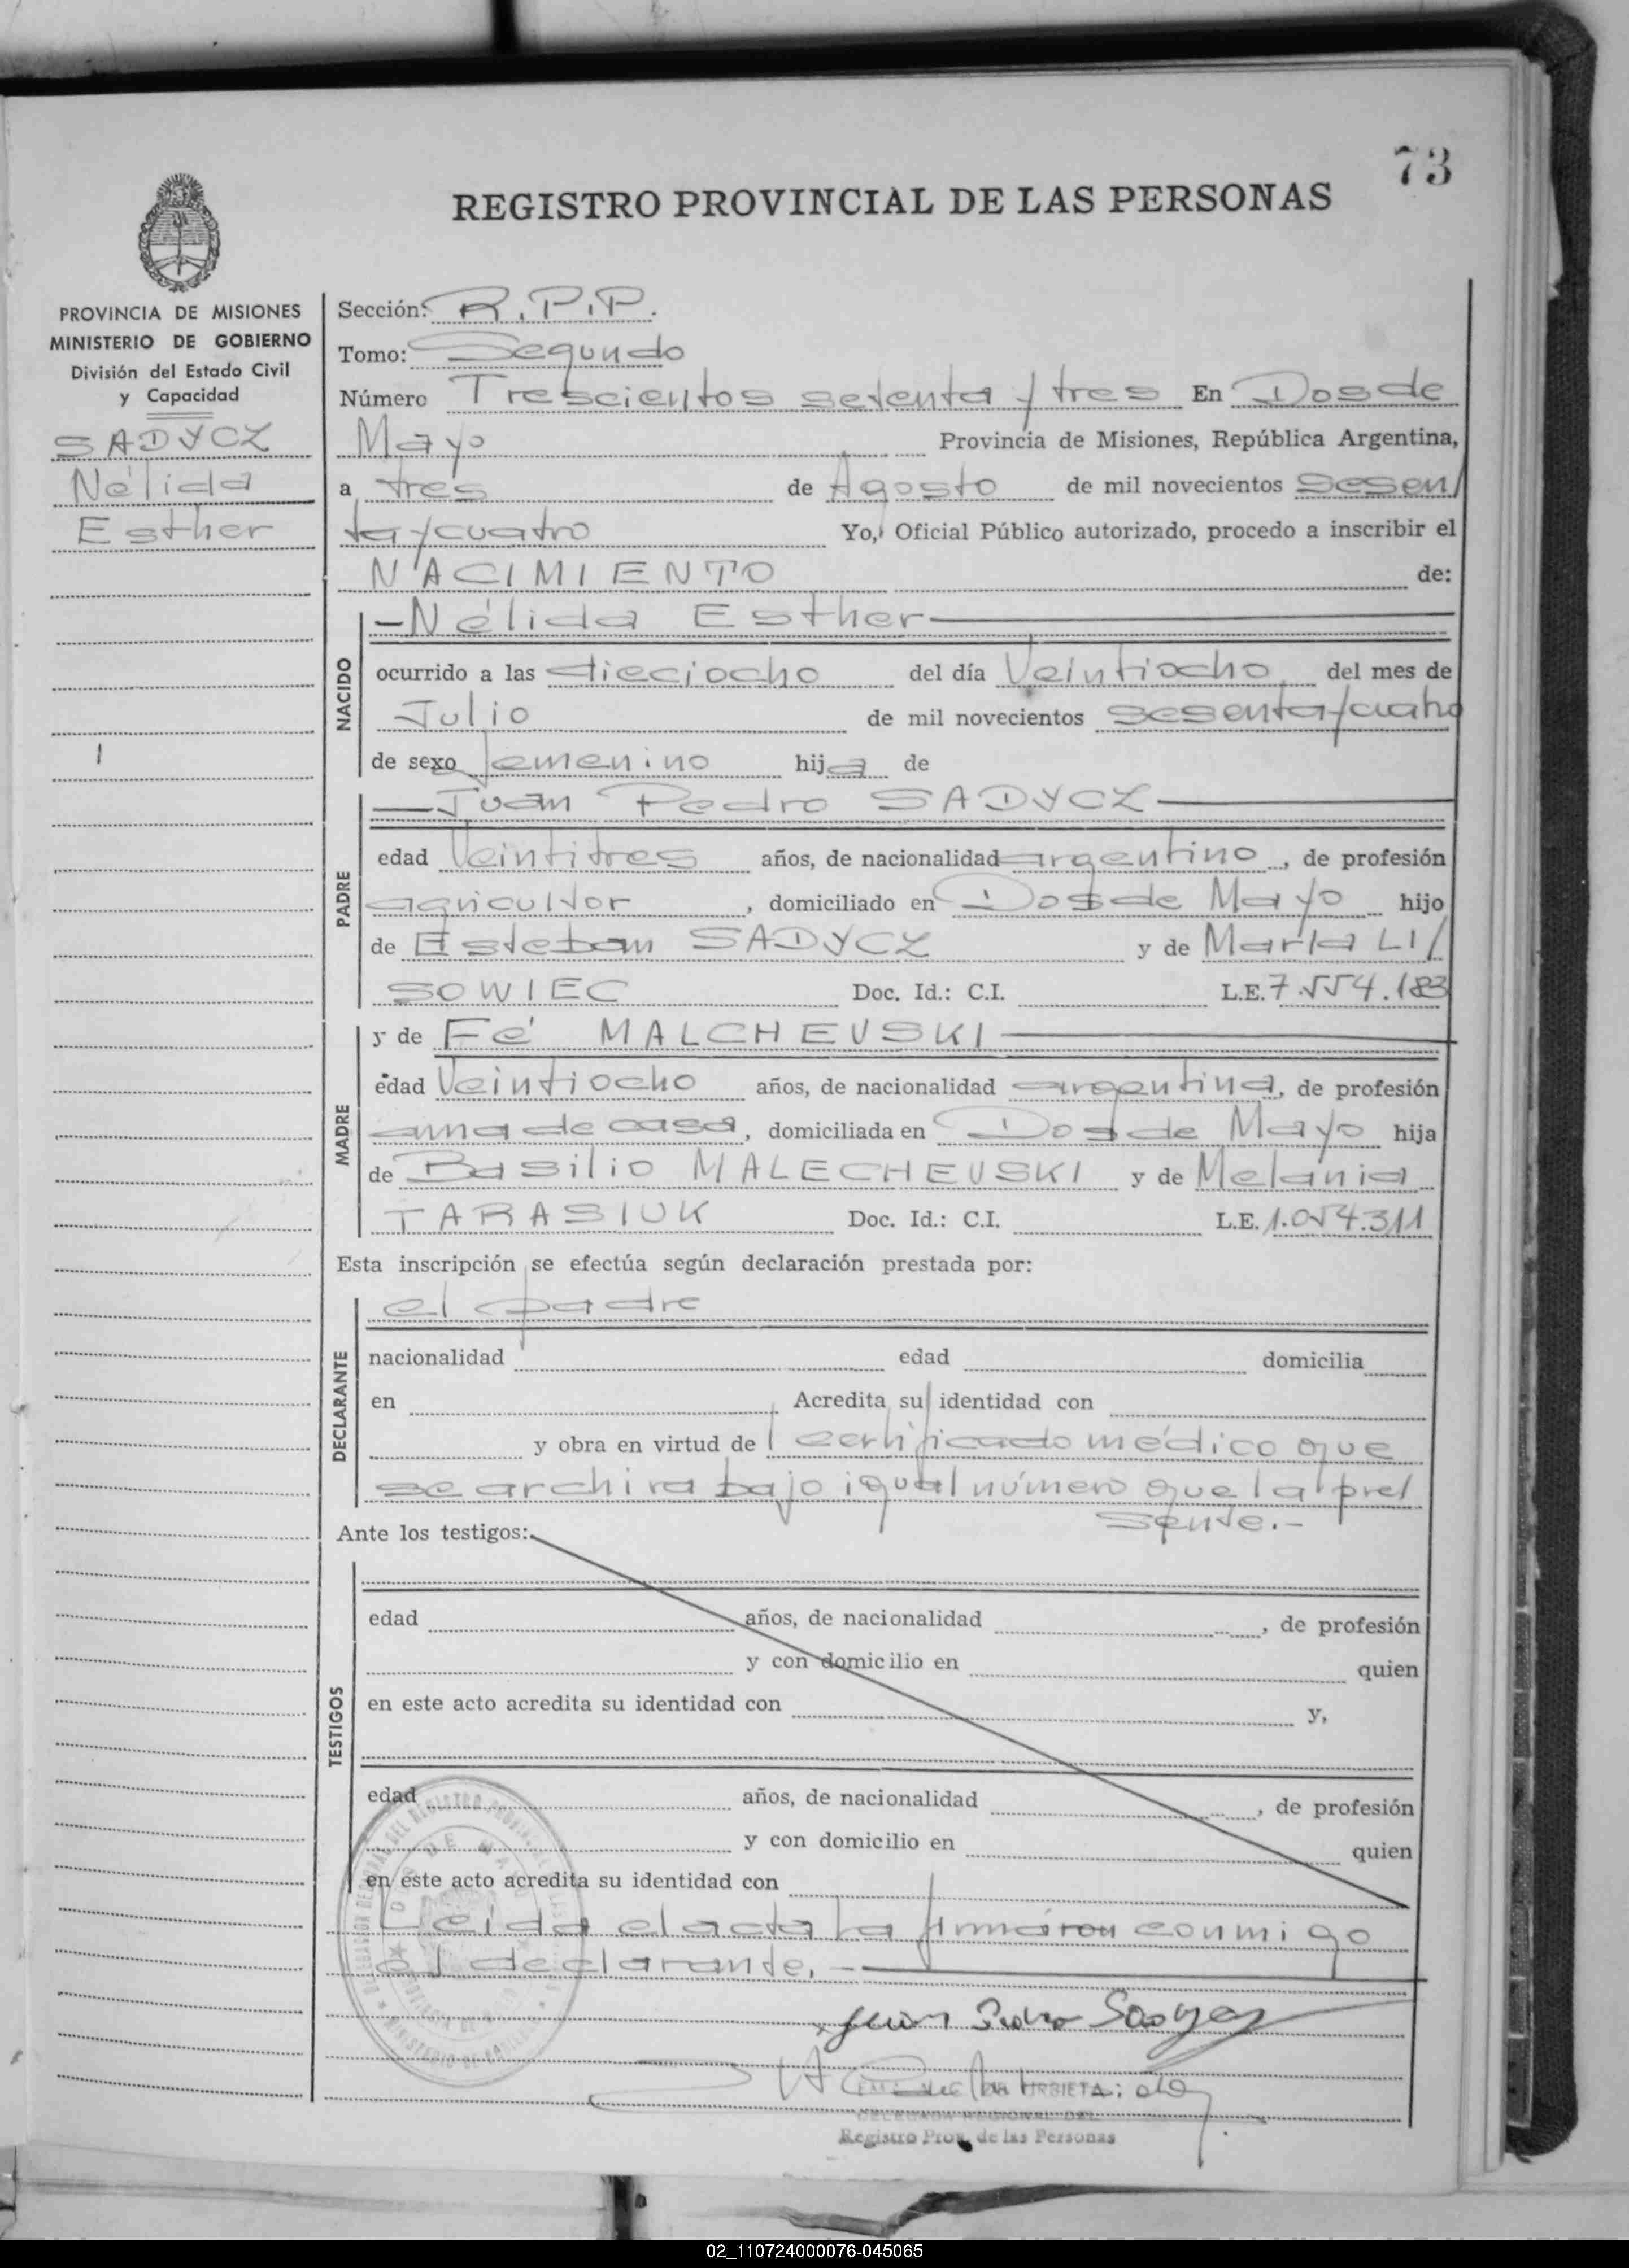 73
REGISTRO PROVINCIAL DE LAS PERSONAS
PROVINCIA DE MISIONES
MINISTERIO DE GOBIERNO
División del Estado Civil
y Capacidad
SADYCZ
Nélida
Esther
Sección: R.P.P.
Tomo: Segundo
Número Trescientos setenta y tres En Dos de
Mayo Provincia de Misiones, República Argentina,
a tres de Agosto de mil novecientos sesen/
ta y cuatro Yo, Oficial Público autorizado, procedo a inscribir el
NACIMIENTO de:
NACIDO
—Nélida Esther—
ocurrido a las dieciocho del día Veintiocho del mes de
Julio de mil novecientos sesenta y cuatro
de sexo femenino hija de
PADRE
—Juan Pedro SADYCZ—
edad Veintitres años, de nacionalidad argentino, de profesión
agricultor, domiciliado en Dos de Mayo hijo
de Esteban SADYCZ y de María LI/
SOWIEC Doc. Id.: C.I. L.E. 7.554.183
MADRE
y de Fé MALCHEVSKI—
edad Veintiocho años, de nacionalidad argentina, de profesión
ama de casa, domiciliada en Dos de Mayo hija
de Basilio MALECHEVSKI y de Melania
TARASIUK Doc. Id.: C.I. L.E. 1.054.311
Esta inscripción se efectúa según declaración prestada por:
DECLARANTE
el padre
nacionalidad edad domicilia
en Acredita su identidad con
y obra en virtud de l certificado médico que
se archiva bajo igual número que la pre/
sente.-
Ante los testigos:
TESTIGOS
edad años, de nacionalidad , de profesión
y con domicilio en quien
en este acto acredita su identidad con y,
edad años, de nacionalidad , de profesión
y con domicilio en quien
en este acto acredita su identidad con
Leida el acta la firmaron conmigo
el declarante.-
Juan Pedro Sadycz
URBIETA
DELEGADA REGIONAL DEL
Registro Prov. de las Personas
02_110724000076-045065